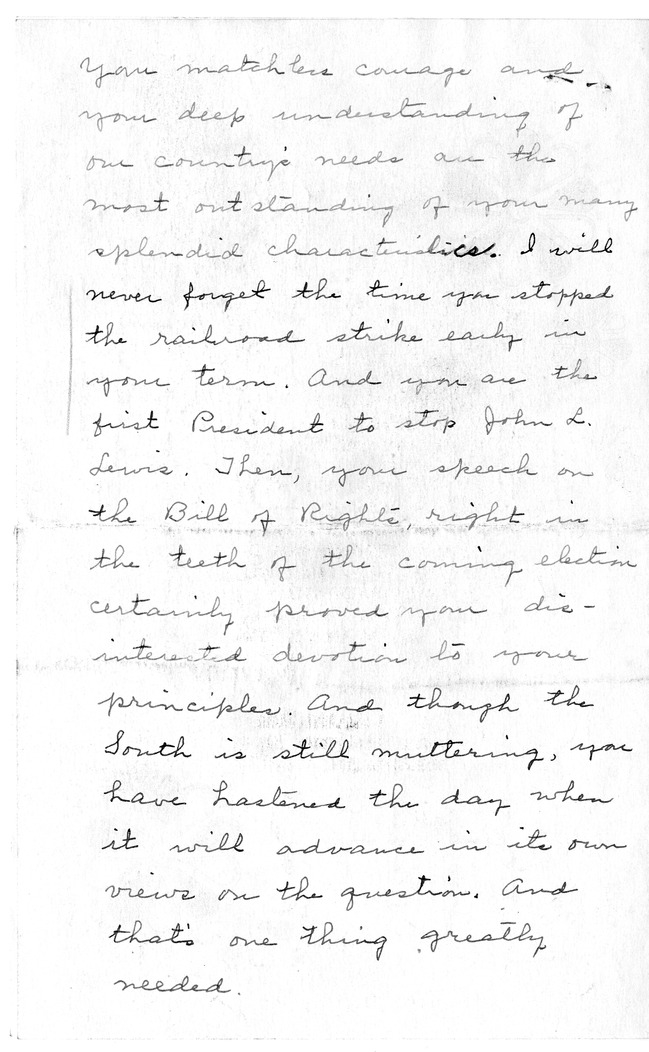 Your matchless courage and
your deep understanding of
our country's needs are the
most outstanding of your many
splendid characteristics. I will
never forget the time you stopped
the railroad strike early in
your term. And you are the
first President to stop John L.
Lewis. Then, your speech on
the Bill of Rights, right in
the teeth of the coming election
certainly proved your dis-
interested devotion to your
principles. And though the
South is still muttering, you
have hastened the day when
it will advance in its own
views on the question. And
that's one thing greatly
needed.